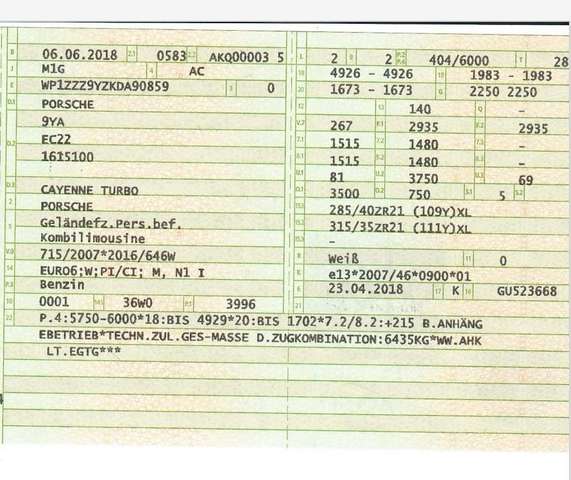 B 06.06.2018 2.1 0583 2.2 AKQ00003 5
J M1G 4 AC
E WP1ZZZ9YZKDA90859 3 0
D.1 PORSCHE
9YA
D.2 EC22
1615100
D.3 CAYENNE TURBO
2 PORSCHE
5 Geländefz.Pers.bef.
Kombilimousine
V.9 715/2007*2016/646W
14 EURO6;W;PI/CI; M, N1 I
P.3 Benzin
10 0001 14.1 36W0 P.1 3996
22 P.4:5750-6000*18:BIS 4929*20:BIS 1702*7.2/8.2:+215 B.ANHÄNG
EBETRIEB*TECHN.ZUL.GES-MASSE D.ZUGKOMBINATION:6435KG*WW.AHK
LT.EGTG***
L 2 9 2 P.2 P.4 404/6000 T 28
18 4926 - 4926 19 1983 - 1983
20 1673 - 1673 G 2250 2250
12 - 13 140 Q -
V.7 267 F.1 2935 F.2 2935
7.1 1515 7.2 1480 7.3 -
8.1 1515 8.2 1480 8.3 -
U.1 81 U.2 3750 U.3 69
O.1 3500 O.2 750 S.1 5 S.2
15.1 285/40ZR21 (109Y)XL
15.2 315/35ZR21 (111Y)XL
15.3 -
R Weiß 11 0
K e13*2007/46*0900*01
6 23.04.2018 17 K 16 GU523668
21